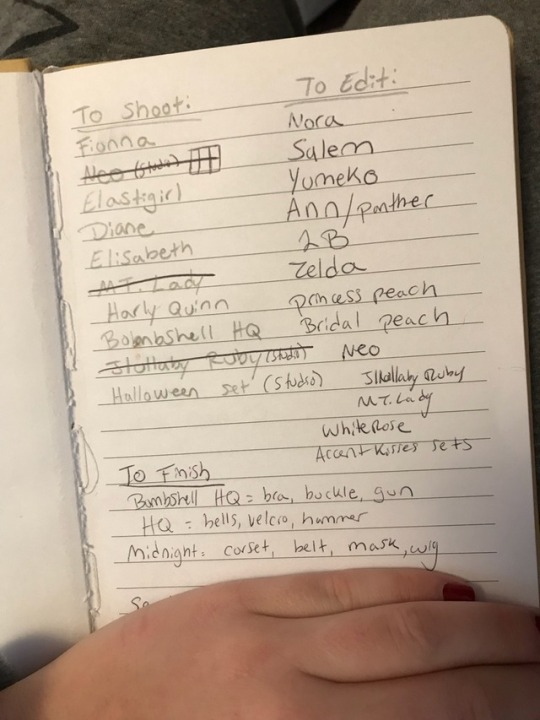 To Shoot:
Fionna
Neo (Studio)
Elastigirl
Diane
Elisabeth
MT. Lady
Harly Quinn
Bombshell HQ
Jlullaby Ruby (Studio)
Halloween set (Studio)
To Edit:
Nora
Salem
Yumeko
Ann/panther
2B
Zelda
princess peach
Bridal peach
Neo
Jlullaby Ruby
MT. Lady
White Rose
Accent Kisses sets
To Finish
Bumbshell HQ = bra, buckle, gun
HQ = bells, velcro, hammer
Midnight: corset, belt, mask, wig